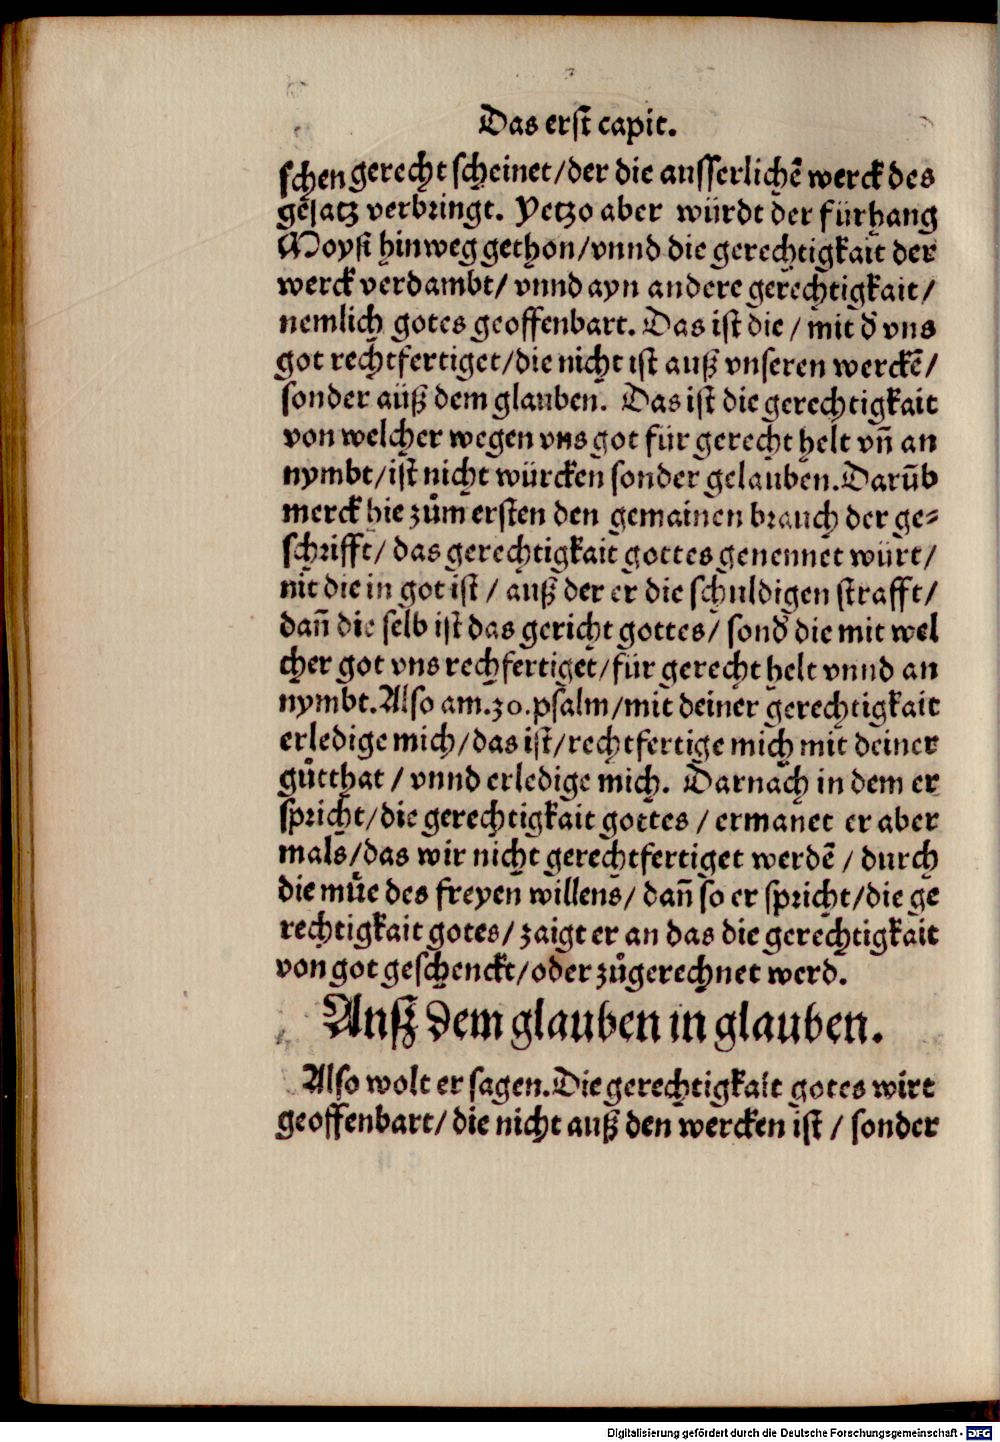 Das erst capit.
schen gerecht scheinet/der die ausserlichē werck des
gesatz verbringt. Yetzo aber würdt der fürhang
Moysi hinweg gethon/vnnd die gerechtigkait der
werck verdambt/ vnnd ayn andere gerechtigkait/
nemlich gotes geoffenbart. Das ist die / mit d̄ vns
got rechtfertiget/die nicht ist auß vnseren werckē/
sonder auß dem glauben. Das ist die gerechtigkait
von welcher wegen vns got für gerecht helt vn̄ an
nymbt/ist nicht würcken sonder gelauben.Darūb
merck hie zům ersten den gemainen brauch der ge⸗
schrifft/ das gerechtigkait gottes genennet würt/
nit die in got ist / auß der er die schuldigen strafft/
dan̄ die selb ist das gericht gottes/ sond̄ die mit wel
cher got vns rechfertiget/für gerecht helt vnnd an
nymbt.Also am.30.psalm/mit deiner gerechtigkait
erledige mich/das ist/rechtfertige mich mit deiner
gůtthat / vnnd erledige mich. Darnach in dem er
spricht/die gerechtigkait gottes / ermanet er aber
mals/das wir nicht gerechtfertiget werdē / durch
die müe des freyen willens/ dan̄ so er spricht/die ge
rechtigkait gotes/ zaigt er an das die gerechtigkait
von got geschenckt/oder zůgerechnet werd.
Ausz dem glauben in glauben.
Also wolt er sagen.Die gerechtigkait gotes wirt
geoffenbart/ die nicht auß den wercken ist / sonder
Digitalisierung gefördert durch die Deutsche Forschungsgemeinschaft - DFG